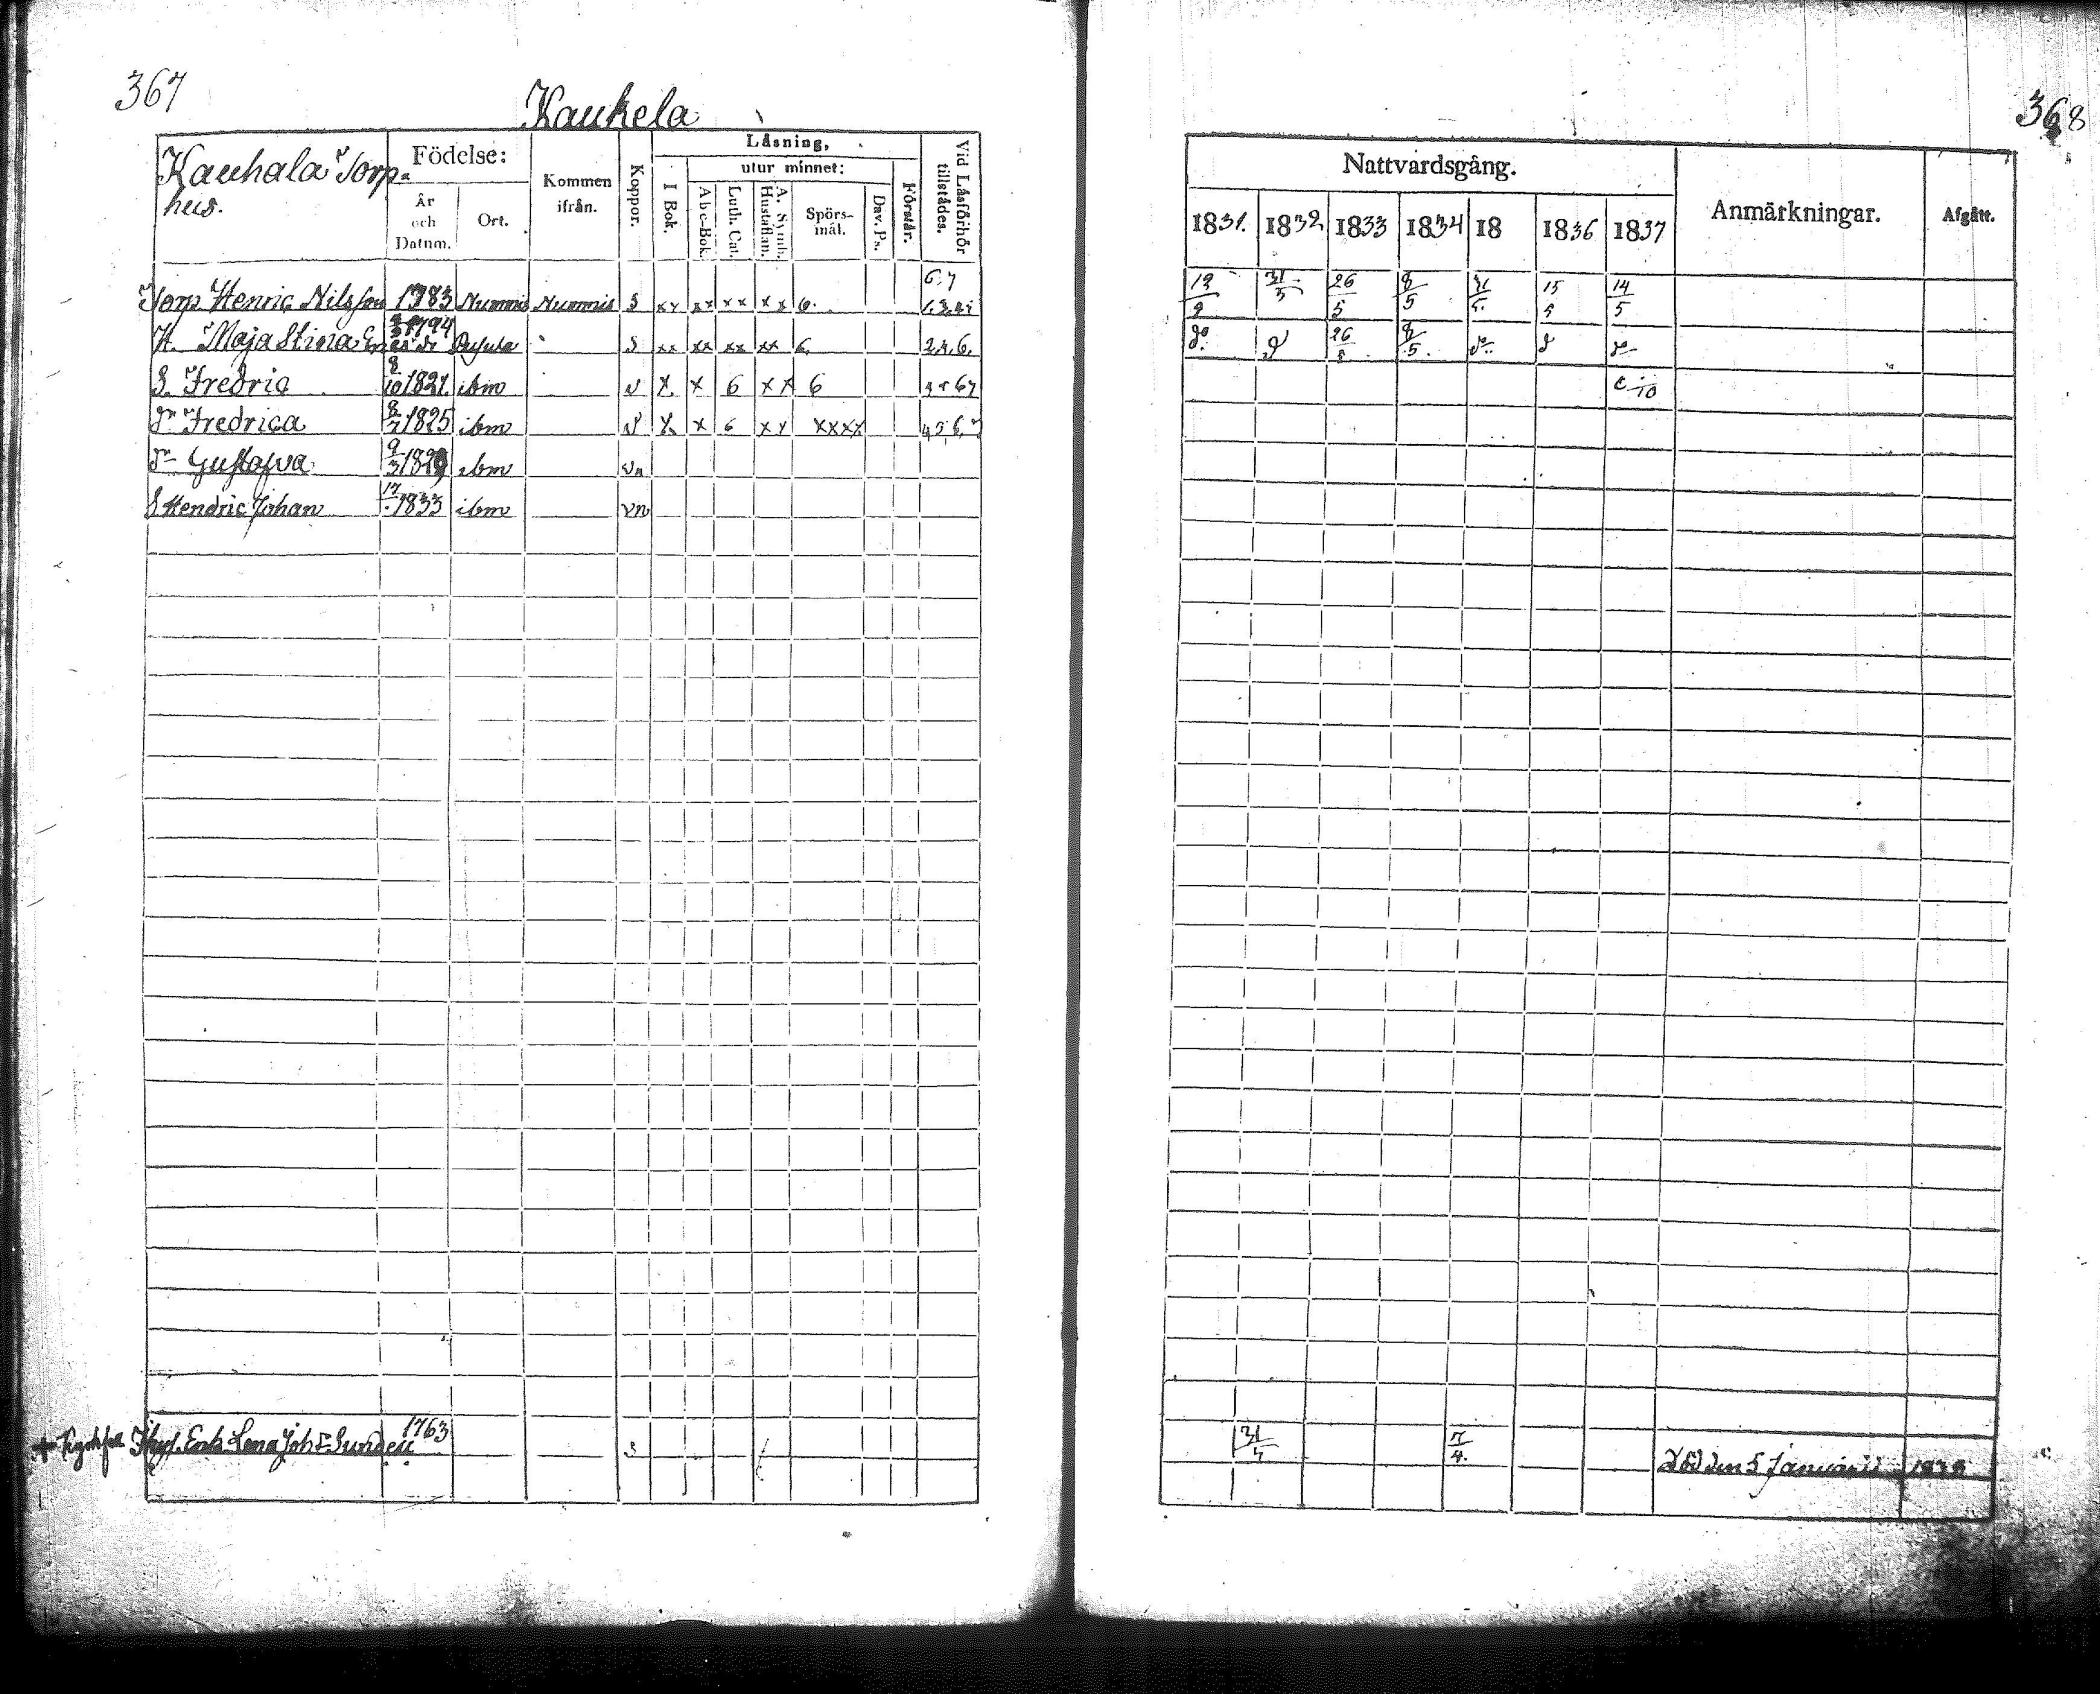 367
Kaukela
Kauhala Torp-
hus.
Födelse:
År
och
Datum.
Ort.
Kommen
ifrån.
Koppor.
Läsning,
utur minnet:
I Bok.
Abc-Bok.
Luth. Cat.
A. Symb.
Hustaflan.
Spörs-
mål.
Dav. Ps.
Förstår.
Vid Läsförhör
tillstädes.
6. 7
Torp. Henric Nilsson 1783 Nummis Nummis S xx xx xx x x 6.
H. Maja Stina 1794 Pusula S xx xx xx xx 6. 2,4,6,
S. Fredric 8/10 1821. ibm v x x 6 x x 6
Dr Fredrica 8/7 1825 ibm v x x 6 x x xxxx 4,5,6,7
Dr Gustafva 9/3 1829 ibm vn
S Hendric Johan 17 1833 ibm vn
Enk. Lena Joh 1763 s
368
Nattvardsgång.
Anmärkningar.
Afgått.
1831. 1832 1833 1834 18 1836 1837
12/9 31/5 26/5 8/5 31/5. 15/5 14/5
do. 26/5 8/5.
c 10
31/4 7/4.
den 5 Januarii 1838